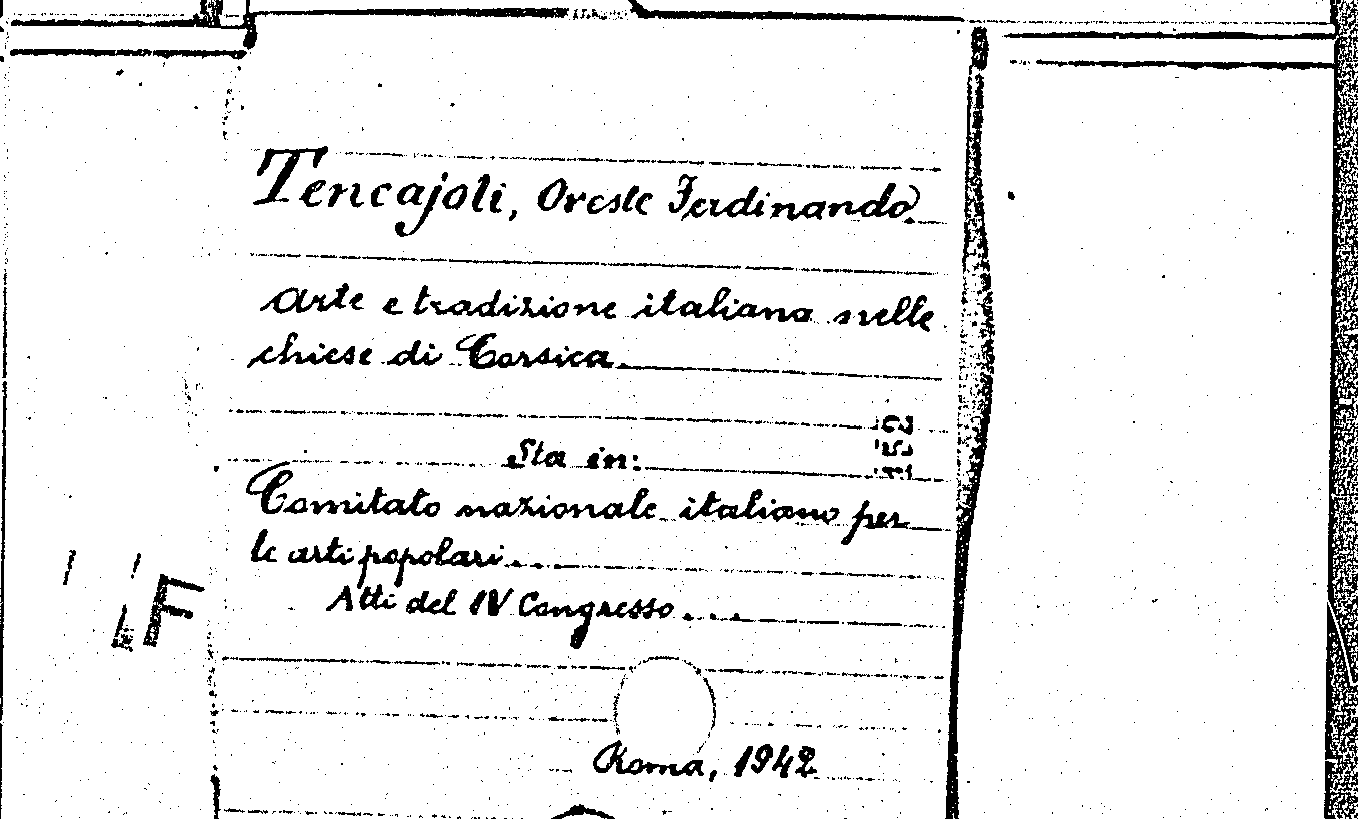 Tencajoli, Oreste Ferdinando.
Arte e tradizione italiana nelle
chiese di Corsica.
152
Sta in:
Comitato nazionale italiano per
le arti popolari...
Atti del IV Congresso....
Roma, 1942